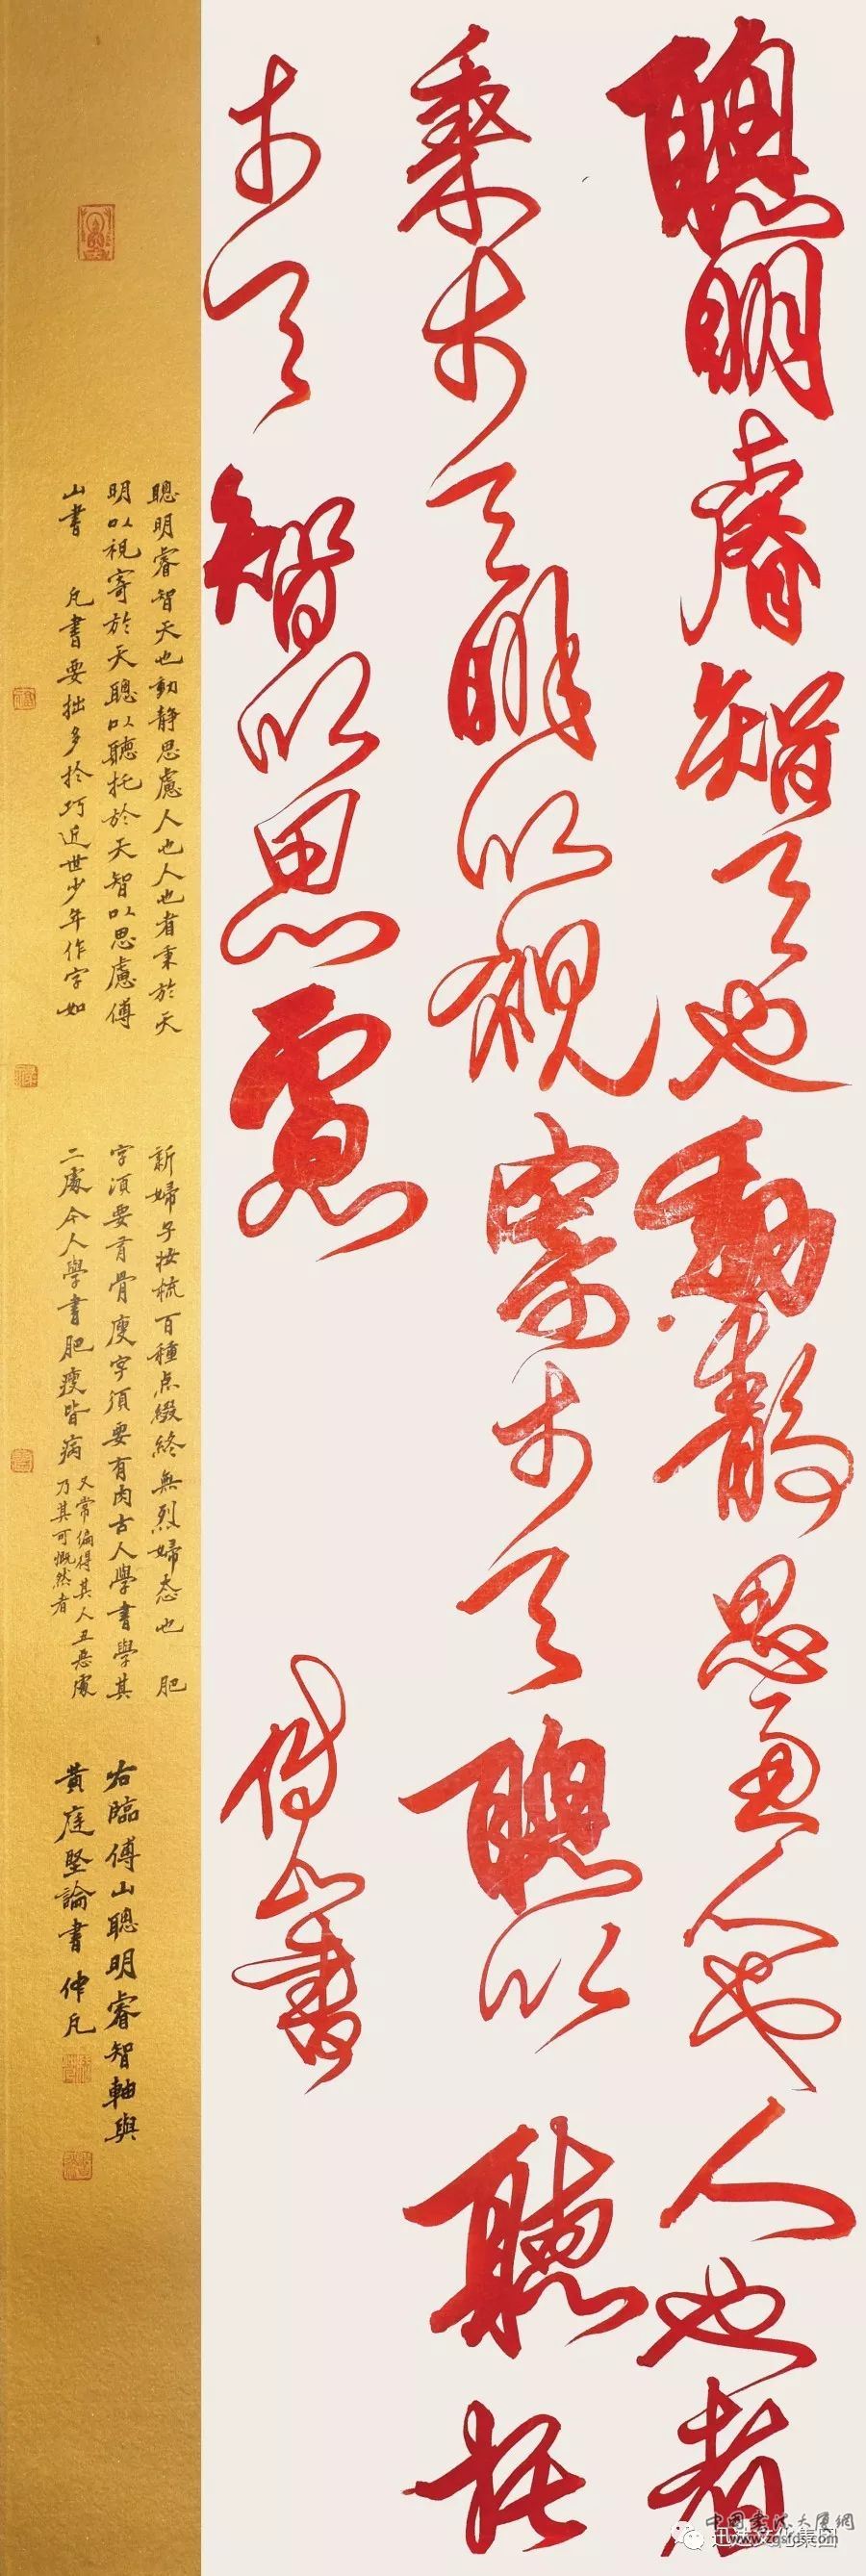 聰明睿智天也動靜思慮人也人也者
秉於天明以視寄於天聰以聽托
於天智以思慮
傅山書
聰明睿智天也動靜思慮人也人也者秉於天
明以視寄於天聰以聽托於天智以思慮傅
山書 凡書要拙多於巧近世少年作字如
新婦子妝梳百種点綴終無烈婦态也 肥
字須要有骨瘦字須要有肉古人學書學其
二處今人學書肥瘦皆病
又常偏得其人丑惡處
乃其可慨然者
右臨傅山聰明睿智軸與
黃庭堅論書 仲凡
中國書法大廈網
www.zgsfds.com